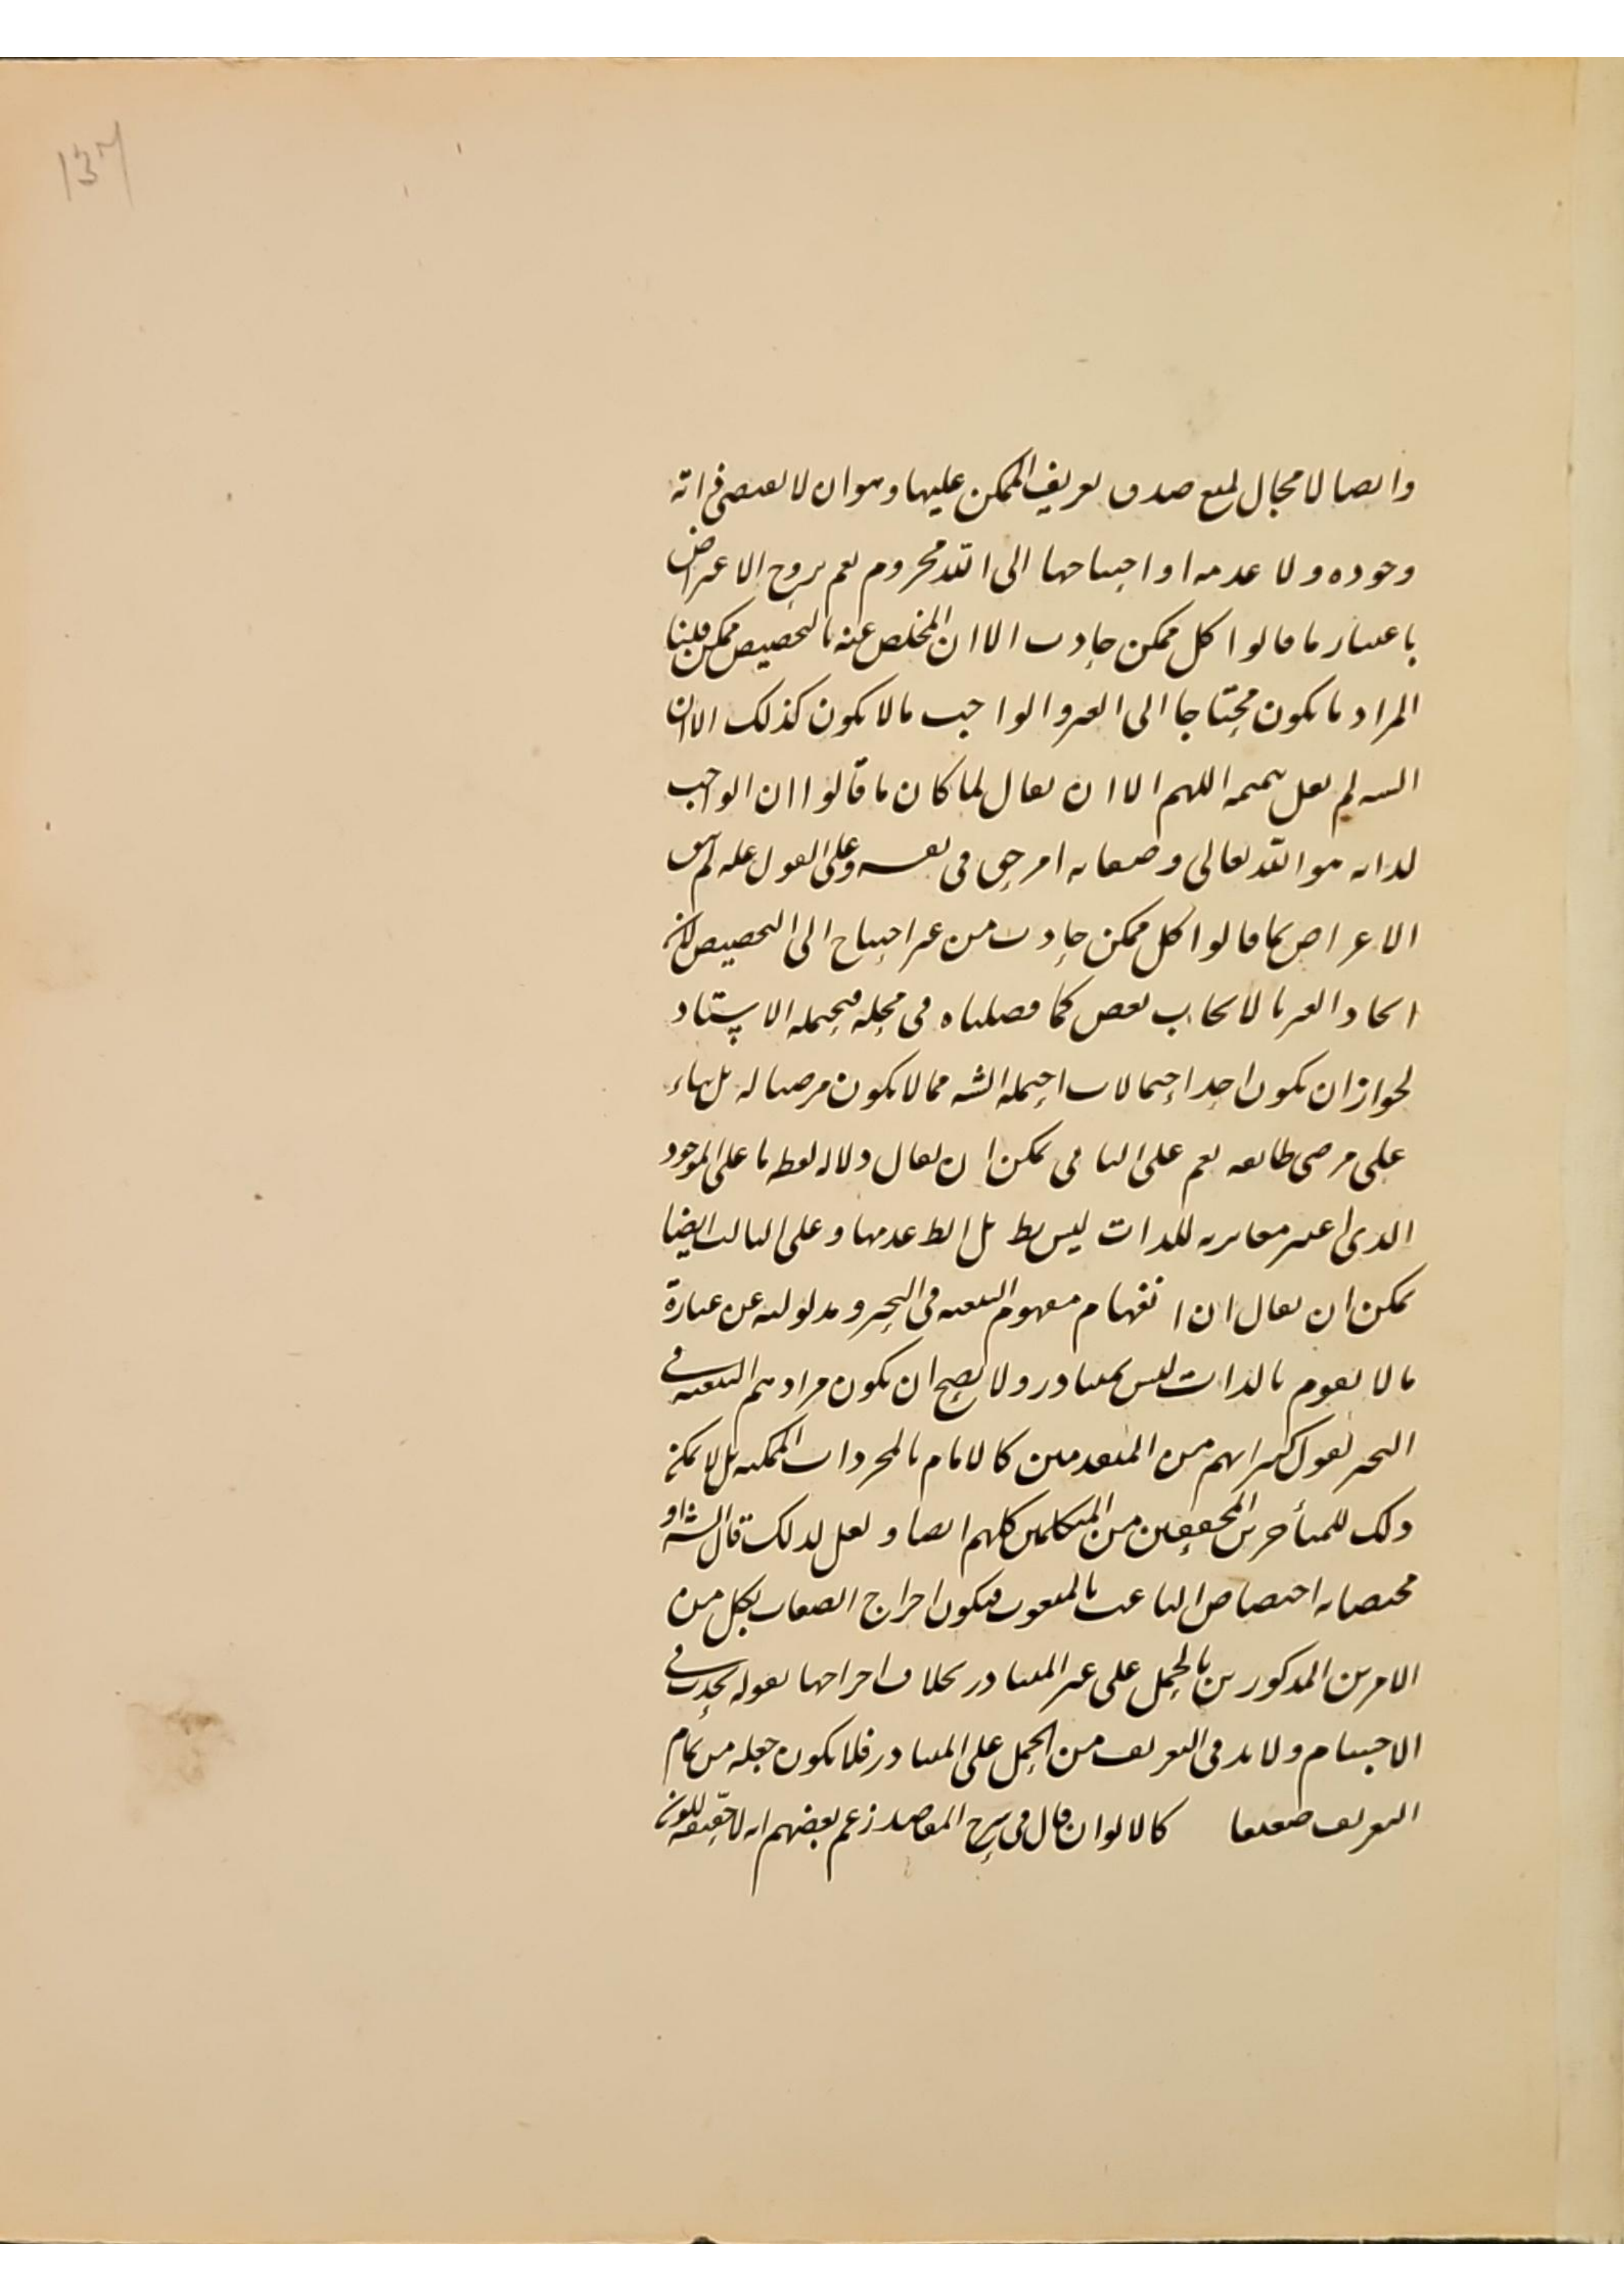 137
وايضا لا مجال لمنع صدق تعريف الممكن عليها وهو ان لا يقتضي ذاته
وجوده ولا عدمه او احتياجها الى الله محروم نعم يروج الاعتراض
باعتبار ما قالوا كل ممكن حادث الا ان المخلص عنه بالتخصيص ممكن قلنا
المراد ما يكون محتاجا الى الغير والواجب ما لا يكون كذلك الا ان
الشه لم يقل بتممه اللهم الا ان يقال لما كان ما قالوا ان الواجب
لذاته هو الله تعالى وصفاته امر حق في نفسه وعلى القول عليه لم
الاعتراض بما قالوا كل ممكن حادث من غير احتياج الى التخصيص لان
ايجاد الغير بالايجاب نقص كما فصلناه في محله فيحمله الاستاد
لجواز ان يكون احد احتمالات احتمله الشه مما لا يكون مرضيا له بل بناء
على مرضى طائفة نعم على الثاني يمكن ان يقال دلالة لفظ ما على الموجود
الذي اعتبر مغايرته للذات ليس بط بل الظ عدمها وعلى الثالث ايضا
يمكن ان يقال ان انفهام مفهوم التبعية في التحيز ومدلوليته عن عبارة
ما لا يقوم بالذات ليس بمتبادر ولا يصح ان يكون مرادهم التبعية في
التحيز لقول كبرائهم من المتقدمين كالامام بالمجردات الممكنة بل لا يمكن
ذلك للمتأخرين المحققين من المتكلمين كلهم ايضا ولعل لذلك قال الشه او
مختصا به اختصاص الناعت بالمنعوت فيكون اخراج الصفات بكل من
الامرين المذكورين بالحمل على غير المتبادر بخلاف اخراجها بقوله يحدث في
الاجسام ولا بد في التعريف من الحمل على المتبادر فلا يكون جعله من تمام
التعريف ضعيفا كالالوان قال في شرح المقاصد زعم بعضهم انه لا حقيقة للون